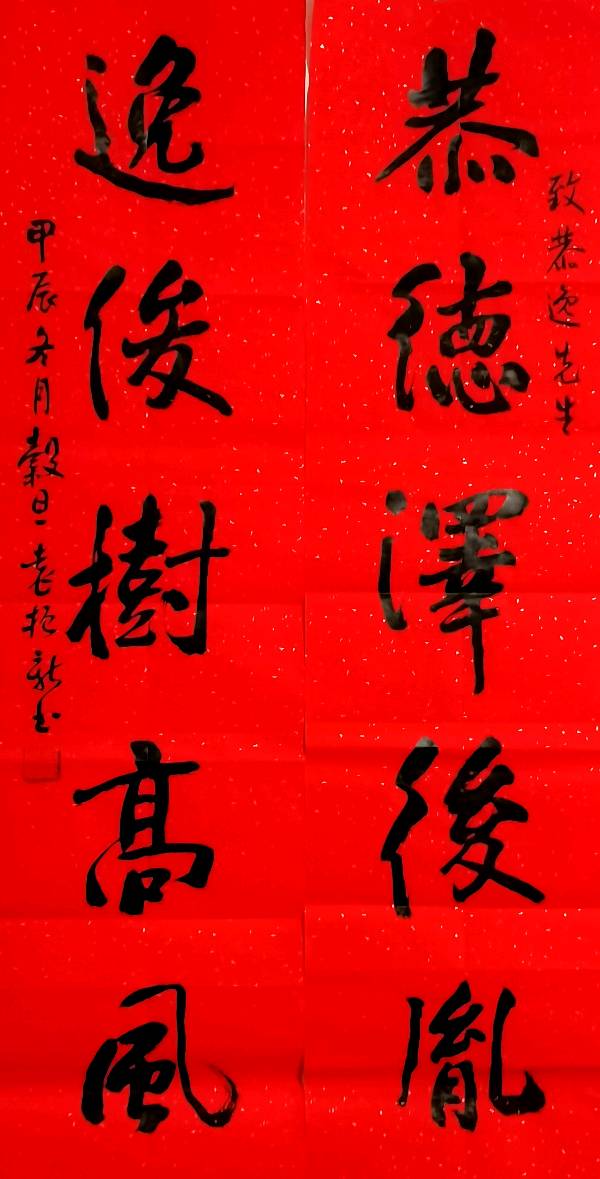 致恭逸先生
恭德澤後胤
逸俊樹高風
甲辰冬月穀旦袁振新書